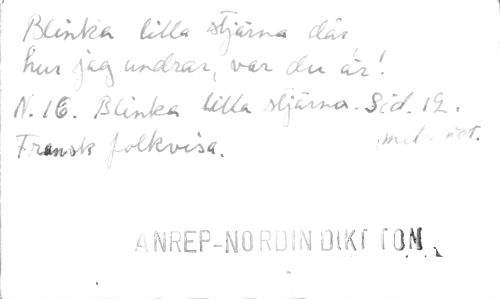 Blinka lilla stjärna där
hur jag undrar, var du är!
N. 16. Blinka lilla stjärna. Sid. 12.
Fransk folkvisa.
ANREP-NORDIN DIKT TOM